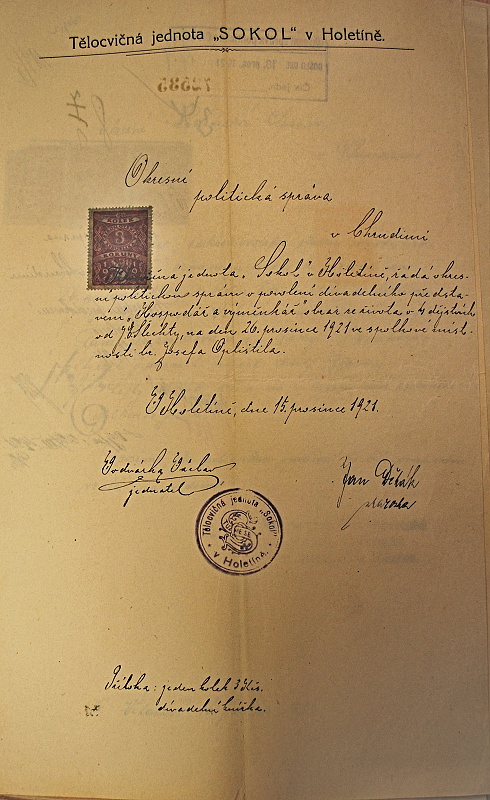 Tělocvičná jednota „SOKOL" v Holetíně.
Okresní
politická správa
v Chrudimi
KOLEK
3
KORUNY
jednota „Sokol" v Holetíně, žádá okres-
ní politickou správu o povolení divadelního předsta-
vení „Hospodář a výminkář" obraz ze života o 4 dějstvích
od J. E. Šlechty, na den 26. prosince 1921 ve spolkové míst-
nosti br. Josefa
V Holetíně, dne 15. prosince 1921.
Vodvárka Václav
jednatel
Jan
starosta
Tělocvičná jednota „Sokol"
v Holetíně.
Příloha: jeden kolek 3 Kčs.
divadelní knížka.